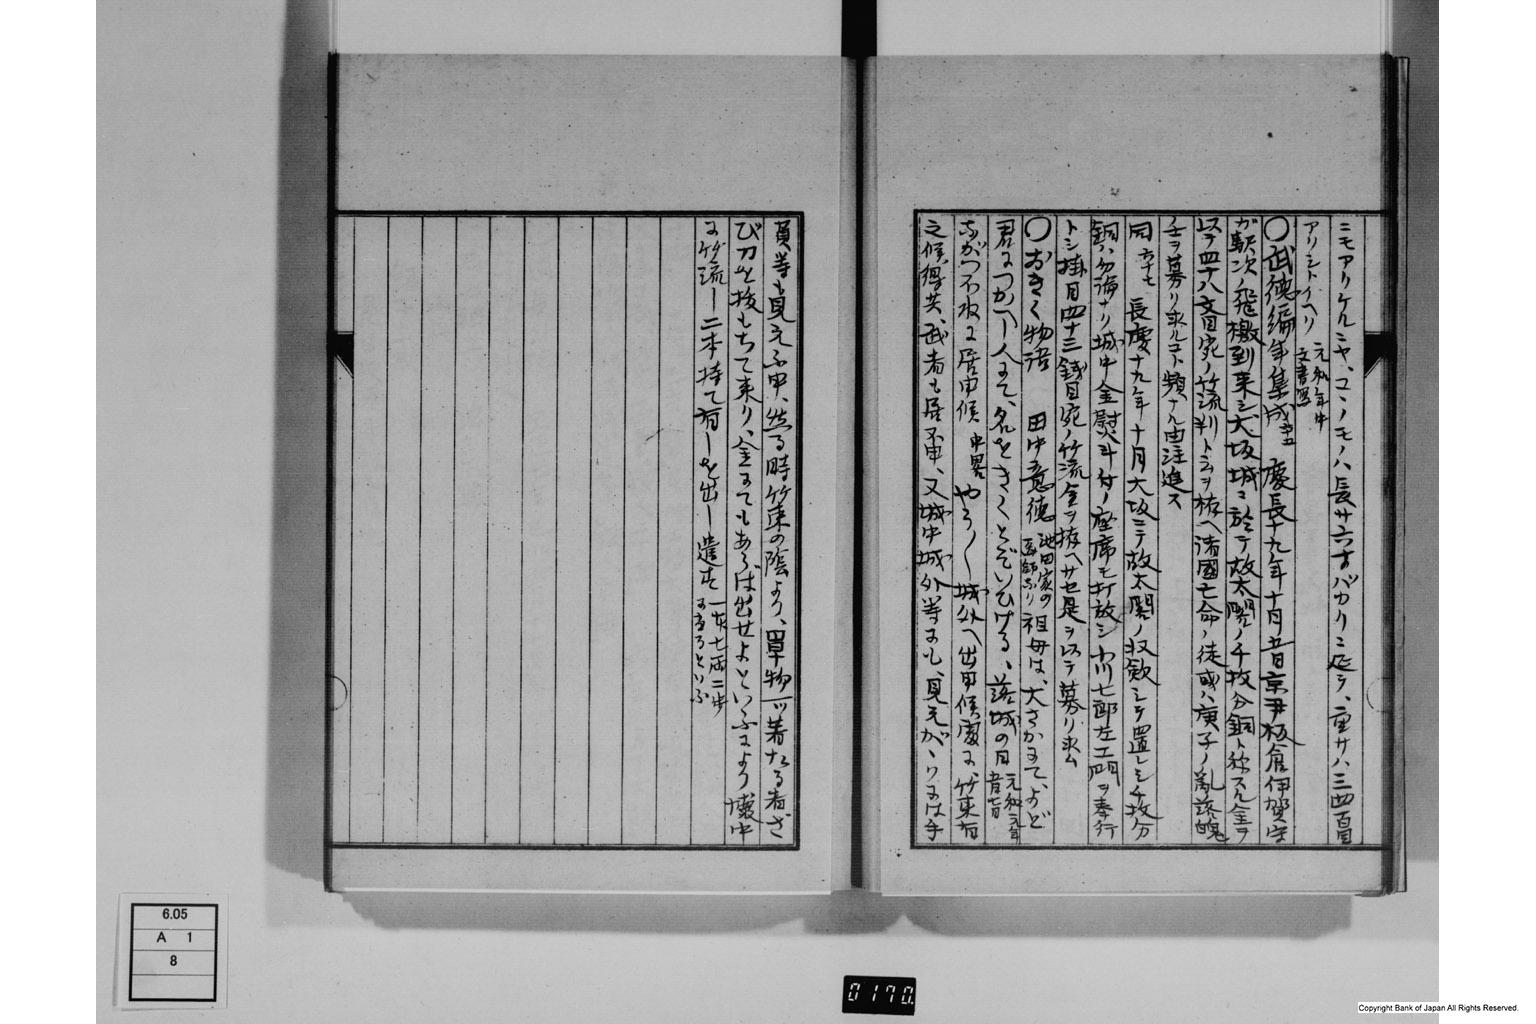 ニモアリケルニヤ、コノモノハ長サ六寸バカリニ延テ、重サハ三四百目
アリシトイヘリ 元和年中文書写
〇武徳編年集成 慶長十九年十月 京尹板倉伊賀守
ガ駅次ノ飛檄到来シ大坂城ニ於テ故太閤ノ千枚分銅ト称スル金ヲ
以テ四十八文目宛ノ竹流判トスヲ拵ヘ諸國亡命ノ徒或ハ庚子ノ亂落魄
士ヲ募リ求ルコト頻ナル由注進ス
同 長慶十九年十月大坂ニテ故太閤ノ収斂シテ置レシ千枚分
銅ハ勿論ナリ城中金熨斗付ノ座席モ打放シ小川七郎左エ門ヲ奉行
トシ掛目四十三銭目宛ノ竹流金ヲ拵ヘサセ是ヲ以テ募リ求ム
〇おきく物語 田中意徳 池田家の医師なり 祖母は、大さかにて、よど
君につかへし人にて、名をきくとぞいひける、落城の日 元和元年
ながつぼねに居申候 中畧 やう〳〵城外へ出申候處に、竹束有
之候得共、武者も居不申、又城中城外等にも、見えがゝりには手
負等も見え不申、然る時竹束の陰より、單物一ツ着たる者さ
び刀を抜もちて来り、金にてもあらば出せよといふにより懐中
に竹流し二本持て有しを出し遣す 一本七両二歩にあたるといふ
6.05
A 1
8
0170
Copyright Bank of Japan All Rights Reserved.